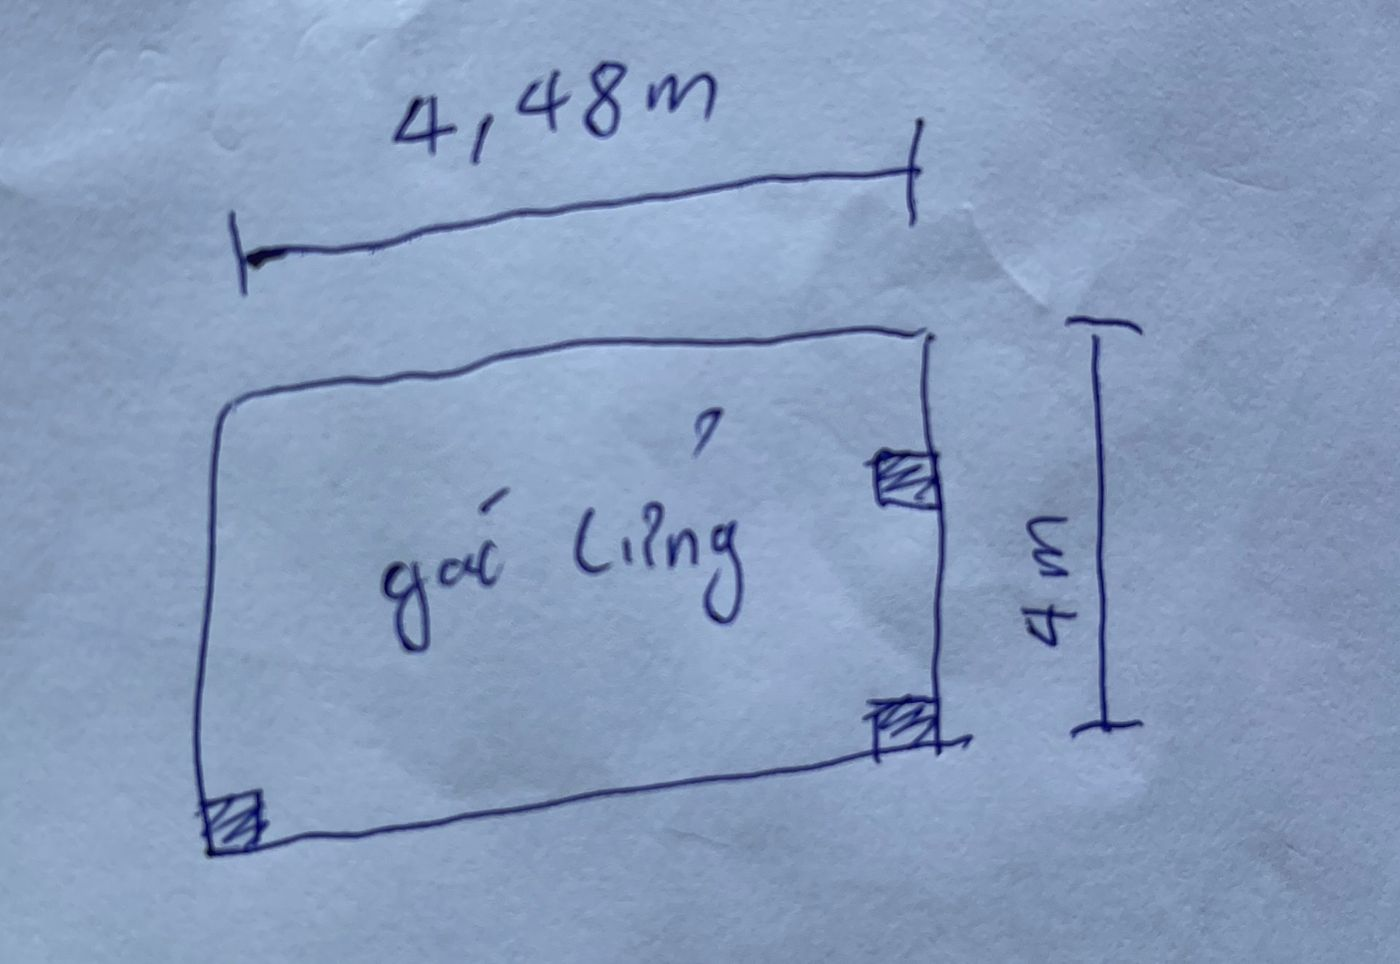 4,48m
gác lửng
4 m